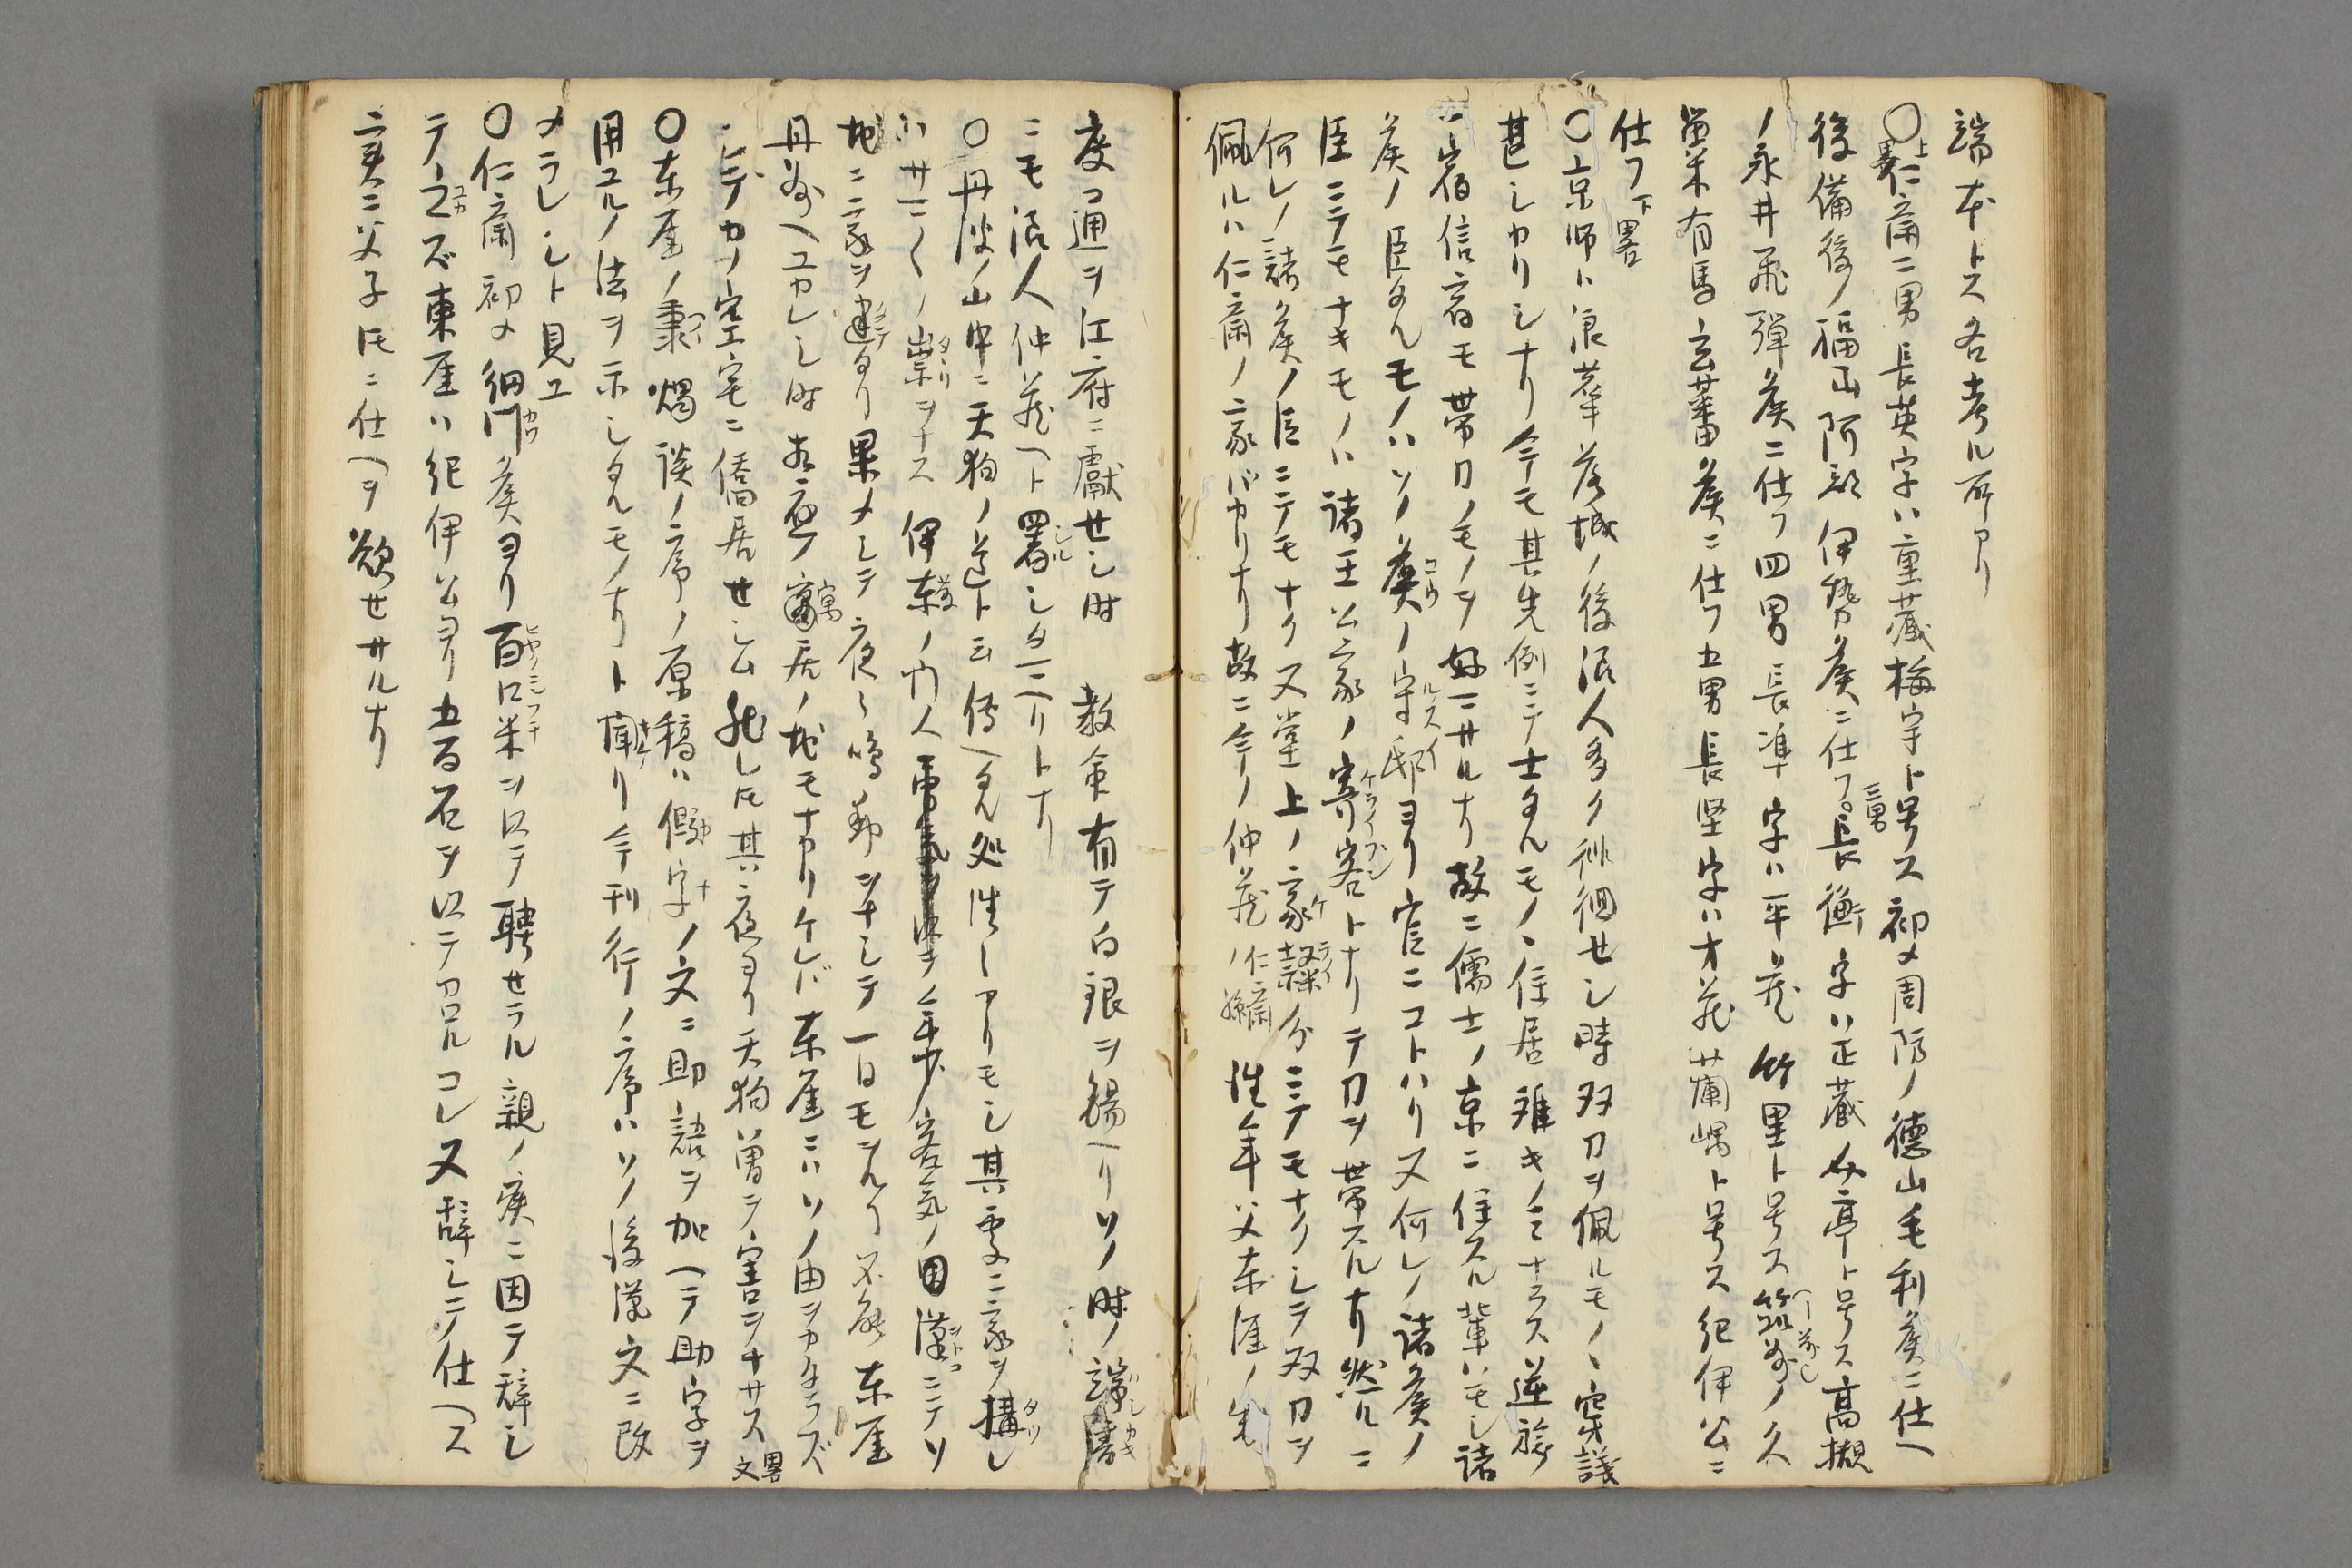 端本トス各考ル所アリ
〇上畧仁斎二男長英字ハ重蔵梅宇ト号ス初メ周防ノ徳山毛利矦ニ仕ヘ
後備後ノ福山阿部伊勢矦ニ仕フ三男長衡字ハ正蔵介亭ト号ス高槻
ノ永井飛彈矦ニ仕フ四男長準字ハ平蔵竹里ト号ス筑前ノ久
留米有馬玄蕃矦ニ仕フ五男長堅字ハ才蔵蘭嵎ト号ス紀伊公ニ
仕フ下畧
〇京師ハ浪華落城ノ後浪人多ク徘徊セシ時双刀ヲ佩ルモノヽ穿議
甚シカリシナリ今モ其先例ニテ士タルモノヽ住居難キノミナラス逆旅
ニ宿信宿モ帯刀ノモノヲ好マサルナリ故ニ儒士ノ京ニ住スル輩ハモシ諸
矦ノ臣タルモノハソノ矦ノ守邸ヨリ官ニコトハリ又何レノ諸矦ノ
臣ニテモナキモノハ諸王公家ノ寄客トナリテ刀ヲ帯スルナリ然ルニ
何レノ諸矦ノ臣ニテモナク又堂上ノ家隷分ニテモナクシテ双刀ヲ
佩ルハ仁斎ノ家バカリナリ故ニ今ノ仲蔵ノ仁斎孫往年父東涯ノ制
度通ヲ江府ニ獻セシ時 教命有テ白銀ヲ錫ヘリソノ時ノ端書
ニモ浪人仲蔵ヘト署シタマヘリトナリ
〇丹波ノ山中ニ天狗ノ道ト云傳ヘタル処往々アリモシ其處ニ家ヲ搆レ
ハサマ〱ノ祟ヲナス伊東ノ門人年少客気ノ漢ニテソ
地ニ家ヲ建タリ果メシテ夜々鳴動ヲナシテ一日モヲルヿ不能東厓
丹州ヘユカレシ時寓居ノ地モナカリケレバ東厓ニハソノ由ヲカタラズ
シテカノ空宅ニ僑居セシム然レ𪜈其夜ヨリ天狗曽テ害ヲナサス畧文
〇東厓ノ秉燭談ノ序ノ原稿ハ假字ノ文ニ助語ヲ加ヘテ助字ヲ
用ユルノ法ヲ示シタルモノナリト聞リ今刊行ノ序ハソノ後漢文ニ改
メラレシト見ユ
〇仁斎初メ細川矦ヨリ百口米ヲ以テ聘セラル親ノ疾ニ因テ辞シ
テ之ズ東厓ハ紀伊公ヨリ五百石ヲ以テ召ルコレ又辞シテ仕ヘス
実ニ父子𪜈ニ仕ヘヲ欲セサルナリ